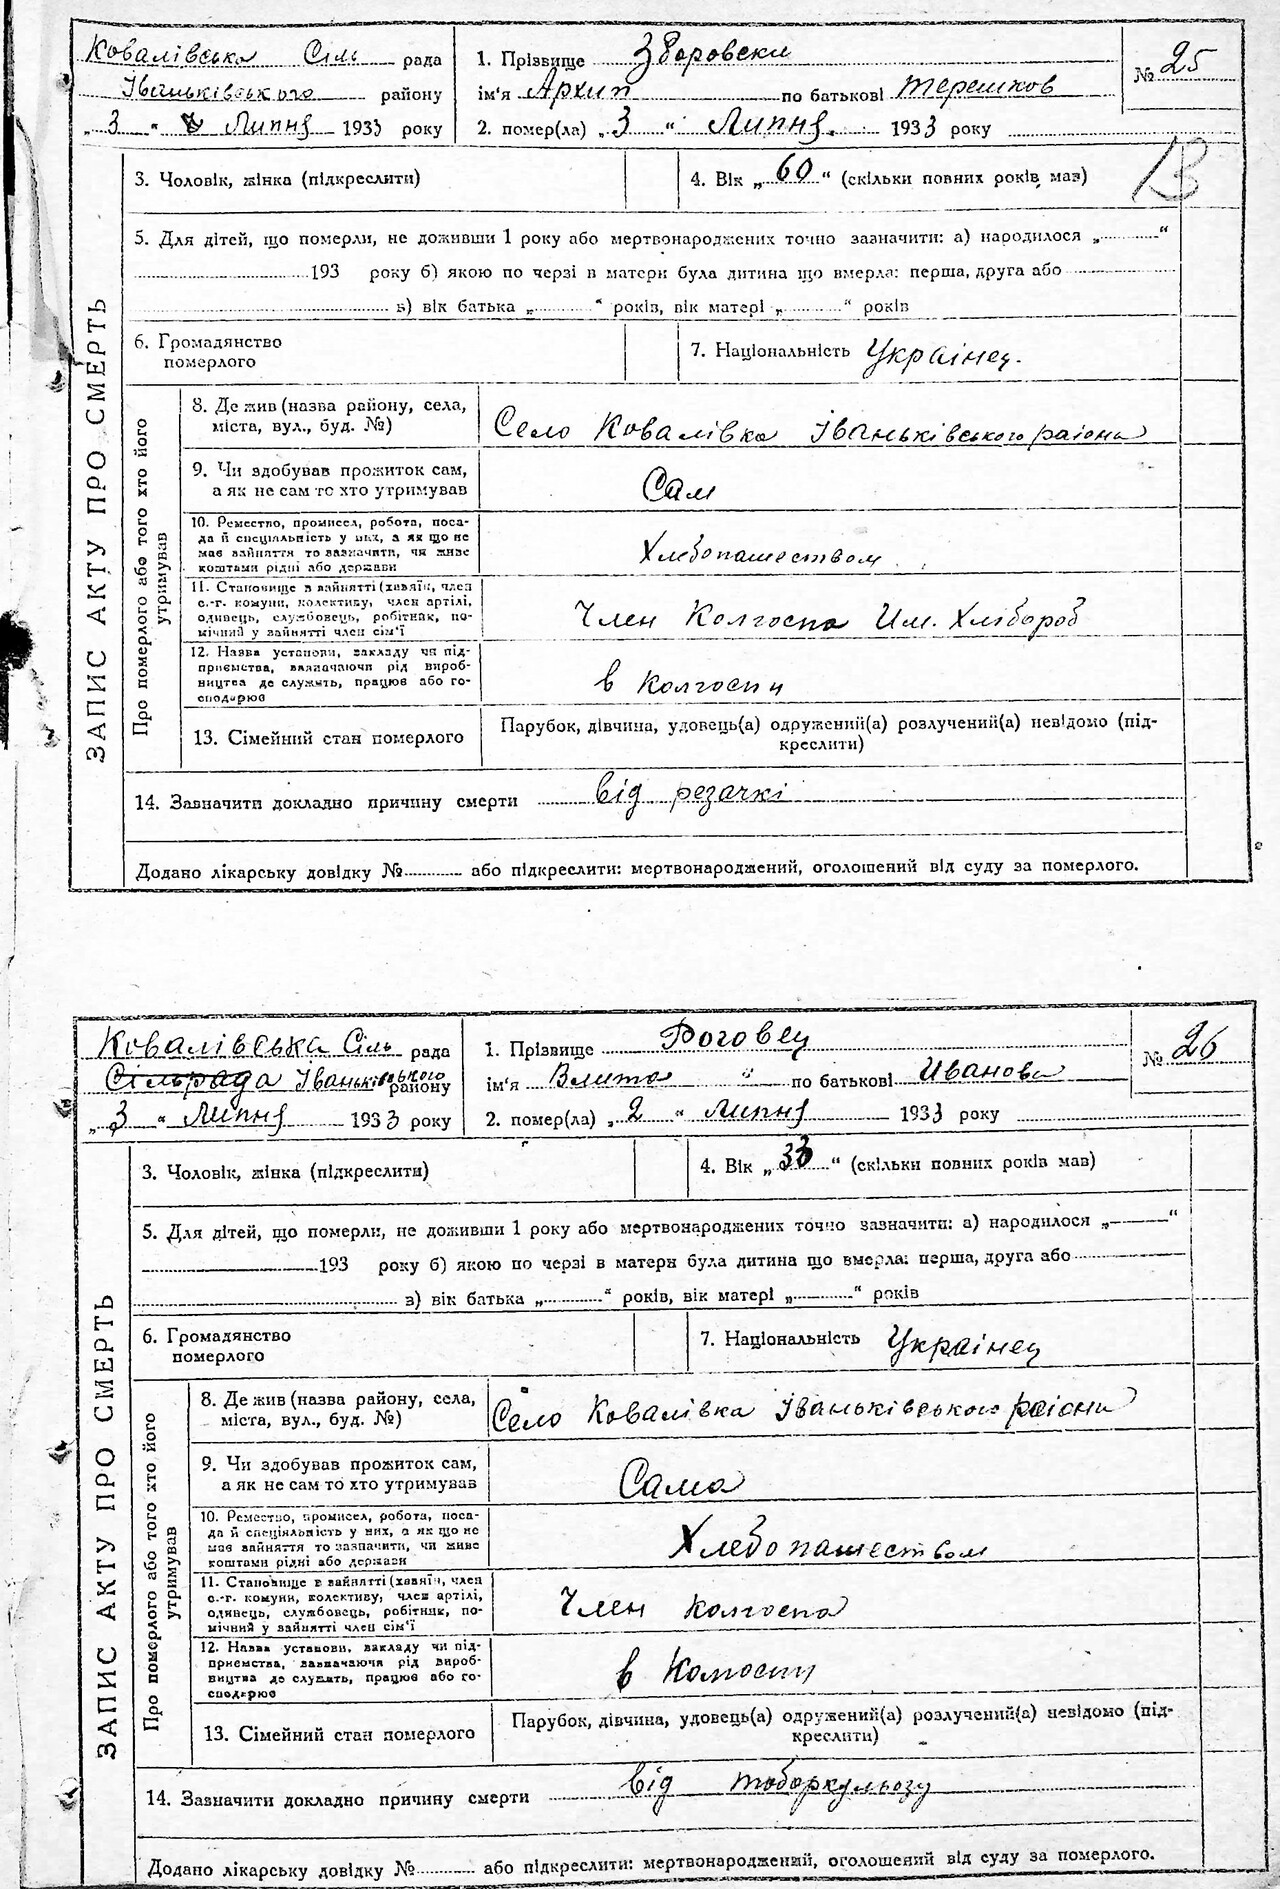 Ковалівська Сіль рада
Іваньківського району
„ 3 “ Липня 1933 року
1. Прізвище Зборовски
ім'я Архип по батькові Терешков
2. помер(ла) „ 3 “ Липня. 1933 року
№ 25
3. Чоловік, жінка (підкреслити)
4. Вік „ 60 “ (скільки повних років мав)
5. Для дітей, що померли, не доживши 1 року або мертвонароджених точно зазначити: а) народилося „ “
193 року б) якою по черзі в матери була дитина що вмерла: перша, друга або
в) вік батька „ “ років, вік матері „ “ років
6. Громадянство
померлого
7. Національність Украінец.
ЗАПИС АКТУ ПРО СМЕРТЬ
Про померлого або того хто його
утримував
8. Де жив (назва району, села,
міста, вул., буд. №)
Село Ковалівка Іваньківського раіони
9. Чи здобував прожиток сам,
а як не сам то хто утримував
Сам
10. Ремество, промисел, робота, поса-
да й спеціяльність у них, а як що не
має зайняття то зазначити, чи живе
коштами рідні або держави
Хлебопашеством
11. Становище в зайнятті (хазяїн, член
с.-г. комуни, колективу, член артілі,
одинець, службовець, робітник, по-
мічний у зайнятті член сім'ї
Член Колгоспа Им. Хлібороб
12. Назва установи, закладу чи під-
приємства, зазначаючи рід вироб-
ництва де служить, працює або го-
сподарює
в колгоспи
13. Сімейний стан померлого
Парубок, дівчина, удовець(а) одружений(а) розлучений(а) невідомо (під-
креслити)
14. Зазначити докладно причину смерти від резачкі
Додано лікарську довідку № або підкреслити: мертвонароджений, оголошений від суду за померлого.
Ковалівська Сіль рада
Сільрада Іваньківського району
„ 3 “ Липня 1933 року
1. Прізвище Роговец
ім'я по батькові Иванови
2. помер(ла) „ 2 “ Липня 1933 року
№ 26
3. Чоловік, жінка (підкреслити)
4. Вік „ 33 “ (скільки повних років мав)
5. Для дітей, що померли, не доживши 1 року або мертвонароджених точно зазначити: а) народилося „ “
193 року б) якою по черзі в матери була дитина що вмерла: перша, друга або
в) вік батька „ “ років, вік матері „ “ років
6. Громадянство
померлого
7. Національність Украінец
ЗАПИС АКТУ ПРО СМЕРТЬ
Про померлого або того хто його
утримував
8. Де жив (назва району, села,
міста, вул., буд. №)
Село Ковалівка Іваньківського раіони
9. Чи здобував прожиток сам,
а як не сам то хто утримував
Сама
10. Ремество, промисел, робота, поса-
да й спеціяльність у них, а як що не
має зайняття то зазначити, чи живе
коштами рідні або держави
Хлебопашеством
11. Становище в зайнятті (хазяїн, член
с.-г. комуни, колективу, член артілі,
одинець, службовець, робітник, по-
мічний у зайнятті член сім'ї
Член колгоспа
12. Назва установи, закладу чи під-
приємства, зазначаючи рід вироб-
ництва де служить, працює або го-
сподарює
в Колгоспи
13. Сімейний стан померлого
Парубок, дівчина, удовець(а) одружений(а) розлучений(а) невідомо (під-
креслити)
14. Зазначити докладно причину смерти від тоборкульозу
Додано лікарську довідку № або підкреслити: мертвонароджений, оголошений від суду за померлого.